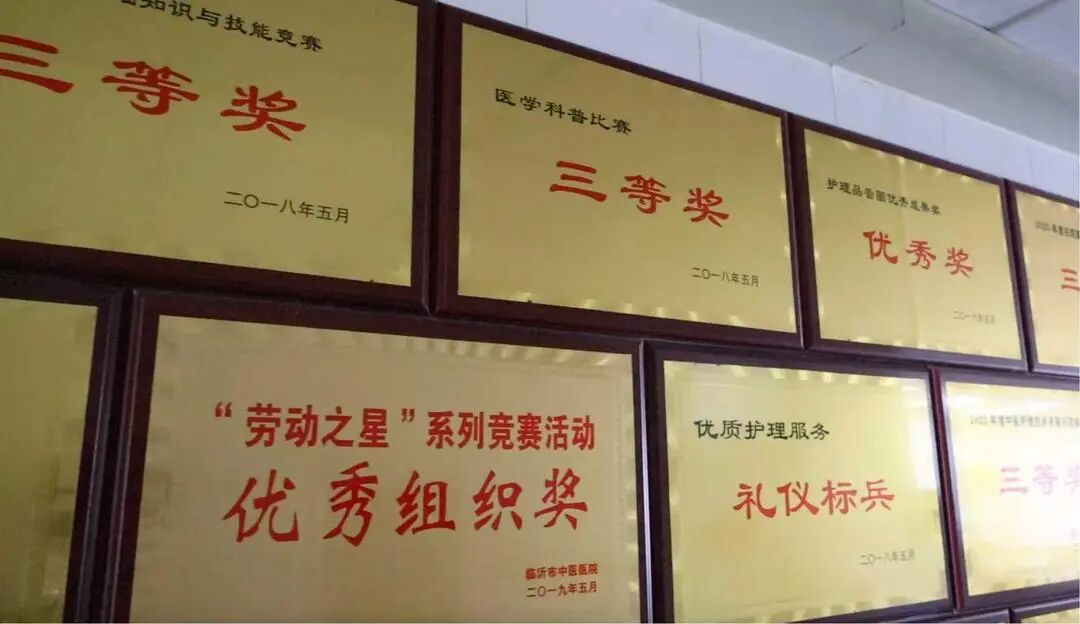 知识与技能竞赛
三等奖
二〇一八年五月
医学科普比赛
三等奖
二〇一八年五月
护理品管圈优秀成果奖
优秀奖
二〇一八年五月
三
“劳动之星”系列竞赛活动
优秀组织奖
临沂市中医医院
二〇一九年五月
优质护理服务
礼仪标兵
二〇一八年五月
三等奖